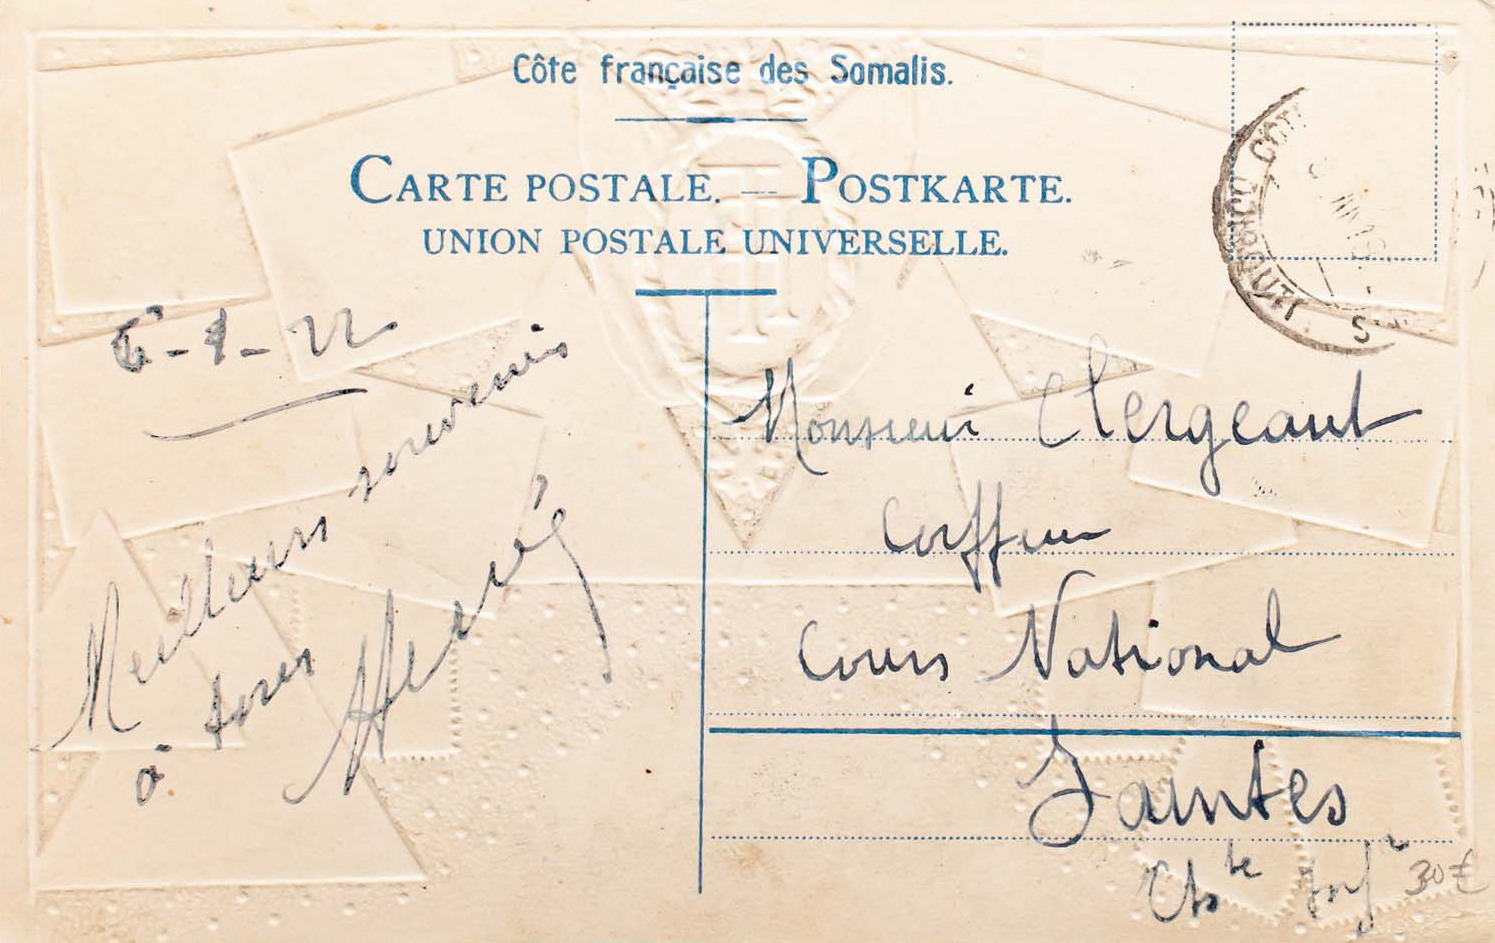 Côte française des Somalis.
CARTE POSTALE. — POSTKARTE.
UNION POSTALE UNIVERSELLE.
6-1-22
Meilleurs souvenirs
à tous
Hervé
Monsieur Clergeaut
Coiffeur
Cours National
Saintes
Chte Infre
30€